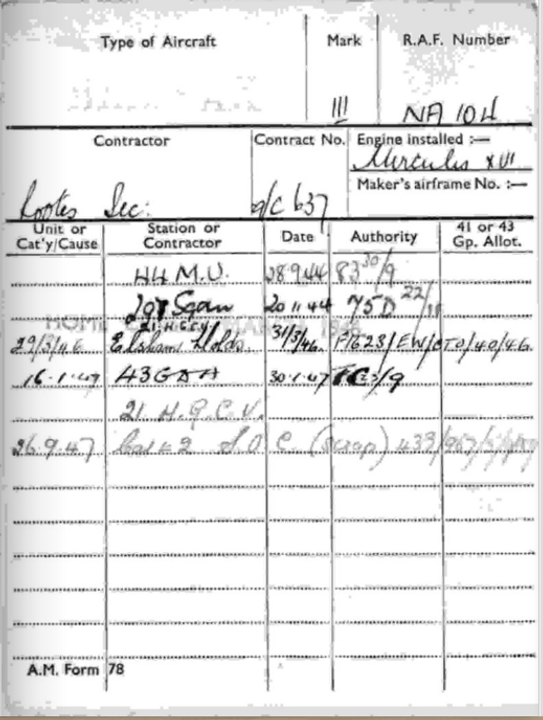 Type of Aircraft Mark R.A.F. Number
III NA 104
Contractor Contract No. Engine installed :—
Hercules XVI
Maker's airframe No. :—
Rootes Sec: a/c 637
Unit or Cat'y/Cause Station or Contractor Date Authority 41 or 43 Gp. Allot.
44 M.U. 28.9.44 83 30/9
20 11 44 75D 22/11
HOME
21.H.G.C.U.
29/3/46 Elsham Wolds. 31/3/46. F/623/EW/OTO/40/46.
16.1.47 43 G 30.1.47 /9
21. H.G.C.U.
26.9.47 S.O C. (scrap)
A.M. Form 78